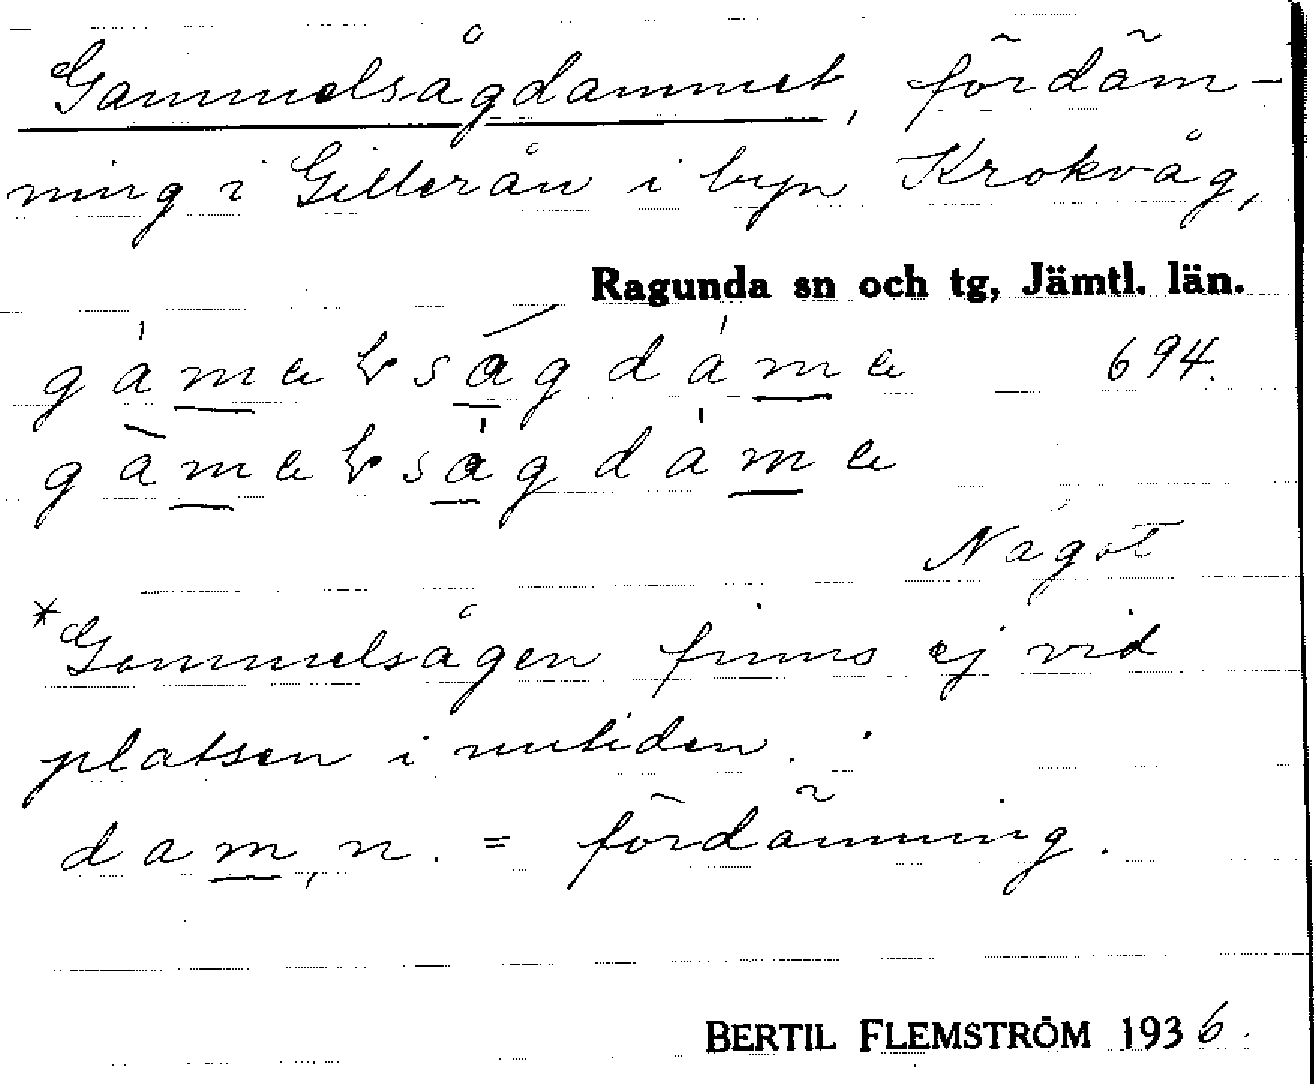 Gammelsågdammet, fördäm-
ning i Gillerån i byn Krokvåg,
Ragunda sn och tg, Jämtl. län.
694.
Något
*Gammelsågen finns ej vid
platsen i nutiden.
dam, n. = fördämning.
BERTIL FLEMSTRÖM 1936.